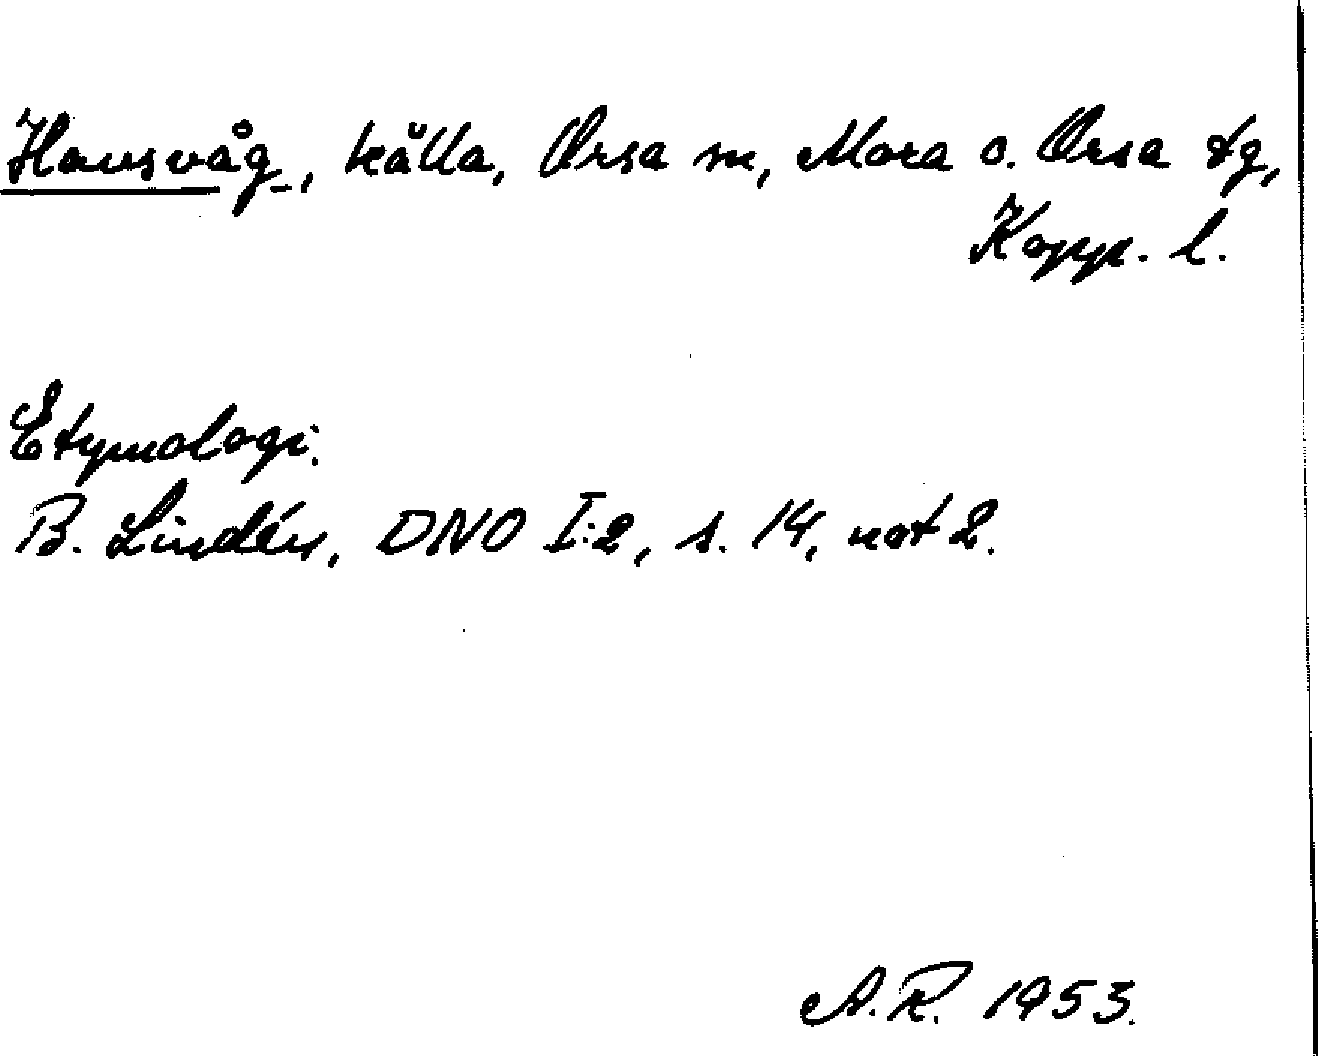 Hansvåg-, källa, Orsa sn, Mora o. Orsa tg,
Kopp. l.
Etymologi.
B. Lindén, DNO I:2, s. 14, not 2.
A.R. 1953.